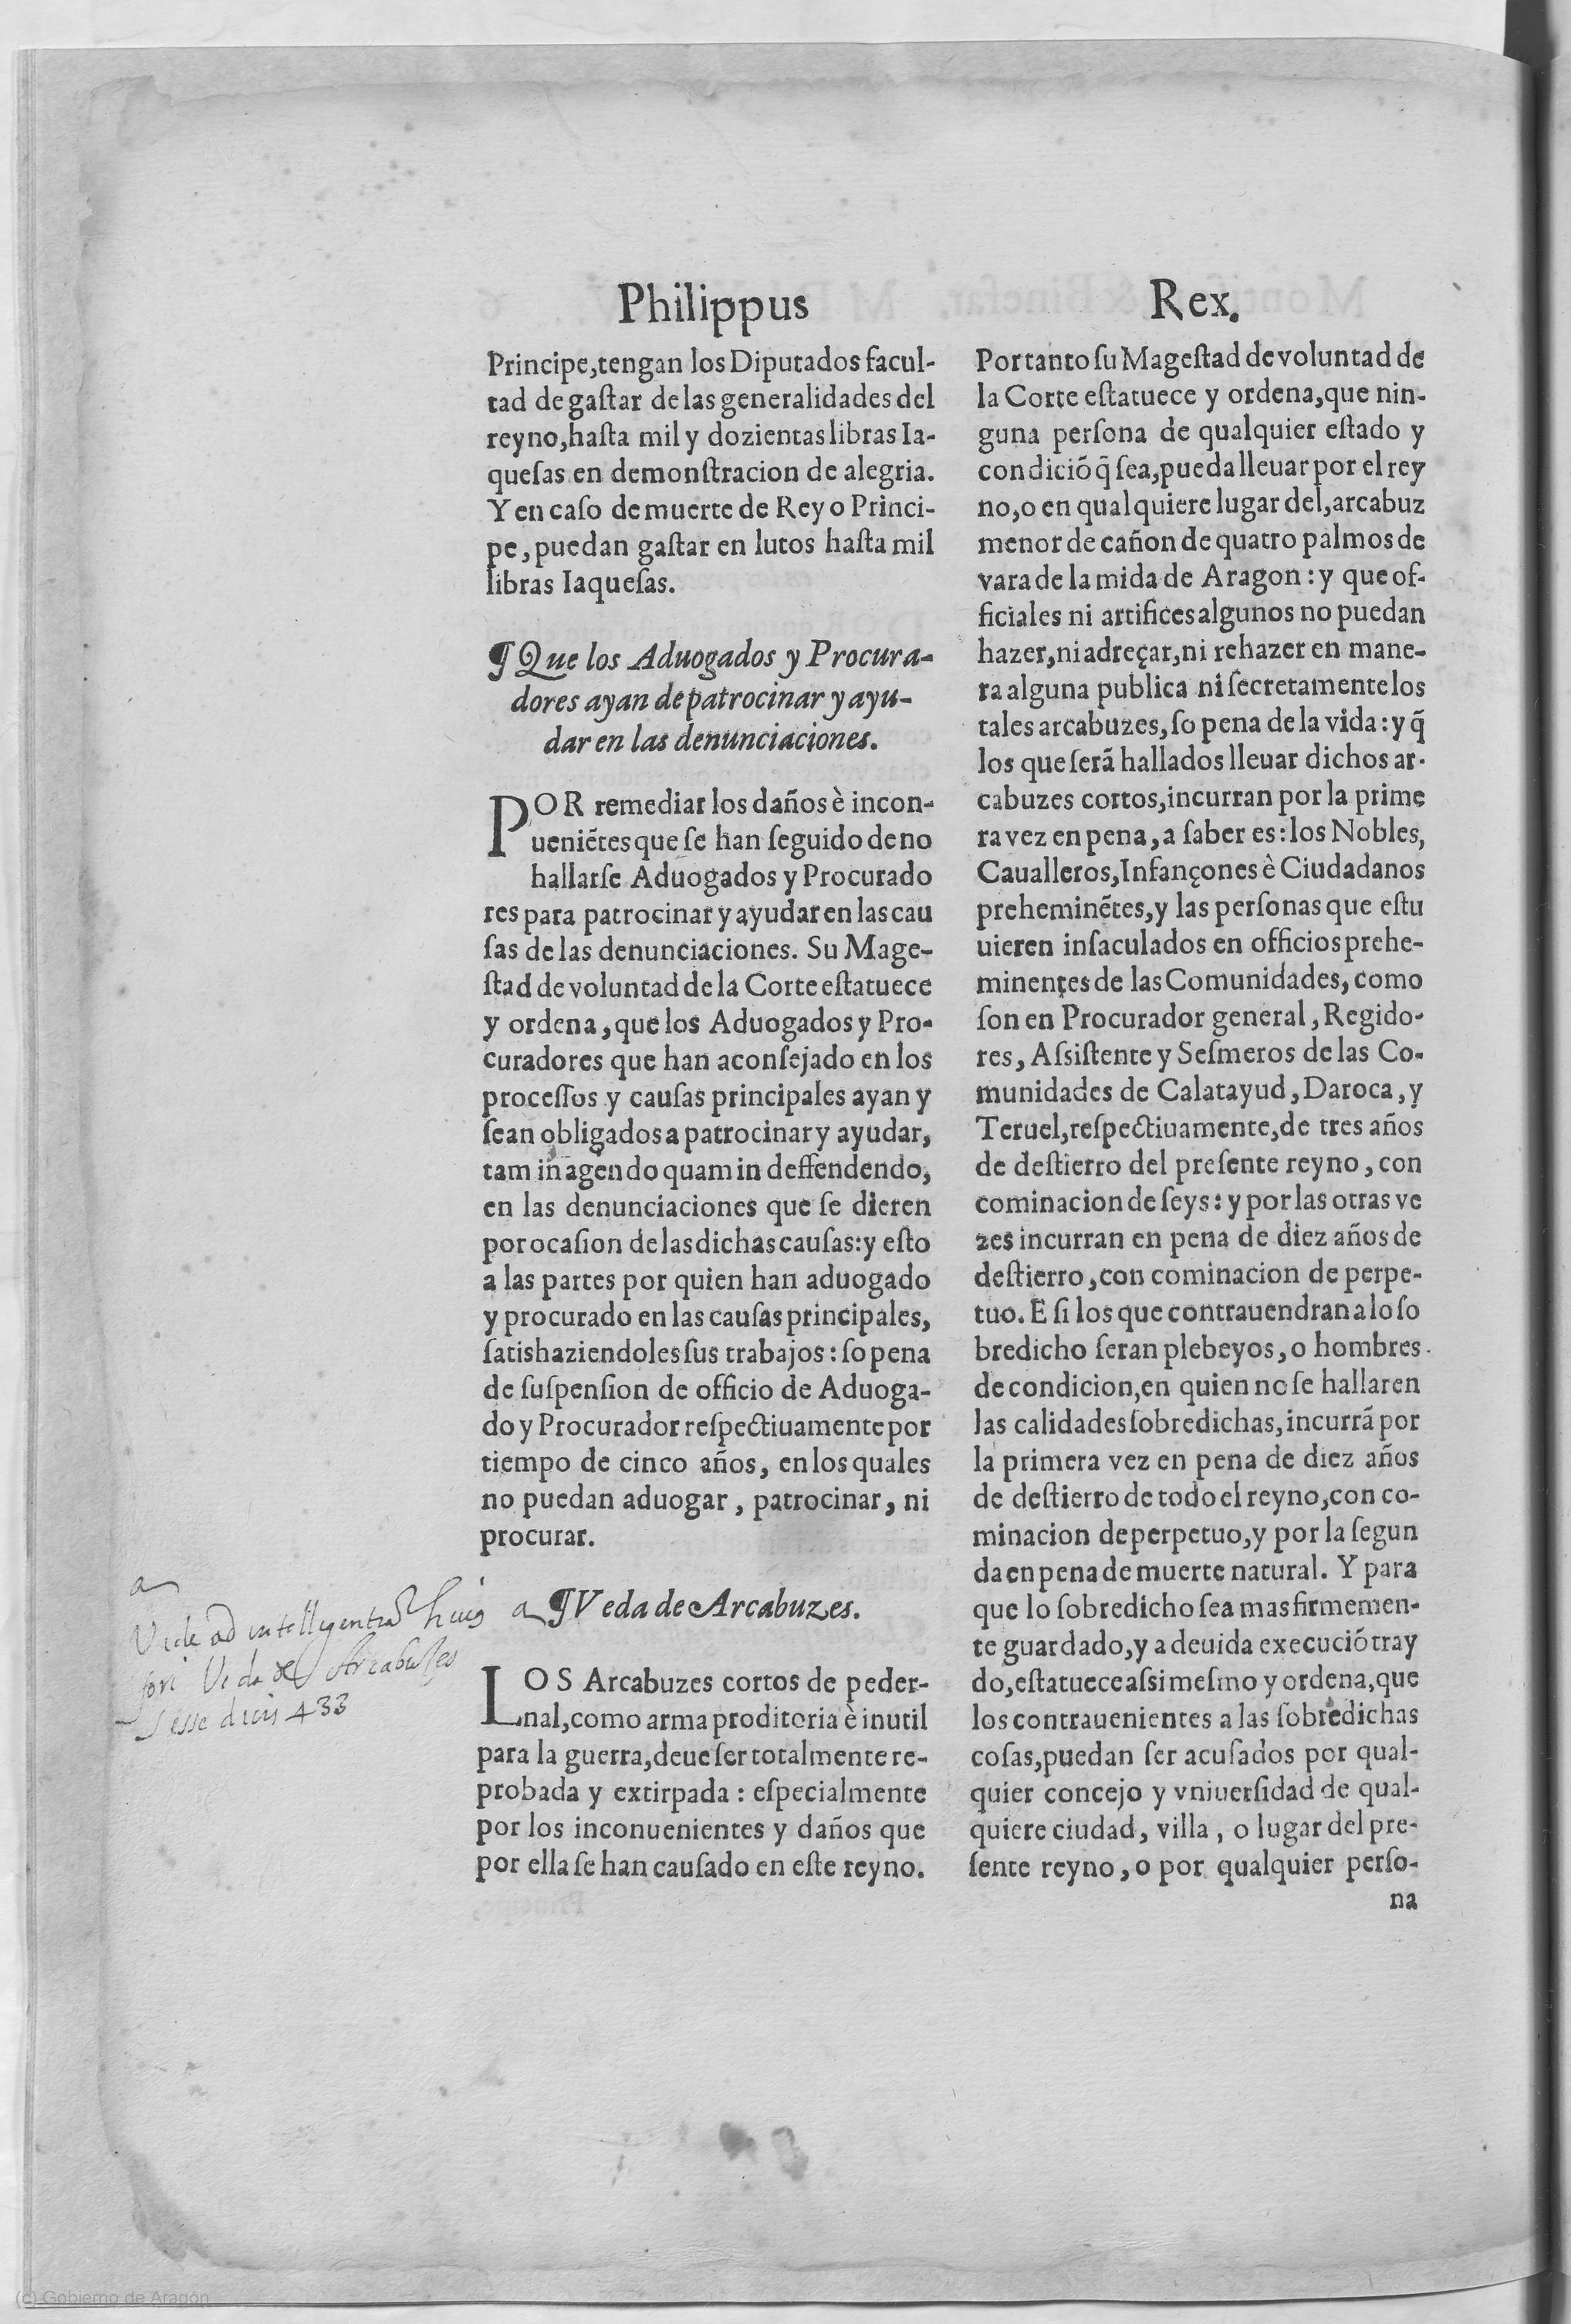 Philippus
Principe,tengan los Diputados facul-
tad de gaſtar de las generalidades del
reyno,haſta mil y dozientas libras Ia-
queſas en demonſtracion de alegria.
Y en caſo de muerte de Rey o Princi-
pe, puedan gaſtar en lutos haſta mil
libras Iaqueſas.
¶ Que los Aduogados y Procura-
dores ayan de patrocinar y ayu-
dar en las denunciaciones.
POR remediar los daños è incon-
ueniẽtes que ſe han ſeguido de no
hallarſe Aduogados y Procurado
res para patrocinar y ayudar en las cau
ſas de las denunciaciones. Su Mage-
ſtad de voluntad de la Corte eſtatuece
y ordena, que los Aduogados y Pro-
curadores que han aconſejado en los
proceſſos y cauſas principales ayan y
ſean obligados a patrocinar y ayudar,
tam in agendo quam in deffendendo,
en las denunciaciones que ſe dieren
por ocaſion de las dichas cauſas:y eſto
a las partes por quien han aduogado
y procurado en las cauſas principales,
ſatishaziendoles ſus trabajos: ſo pena
de ſuſpenſion de officio de Aduoga-
do y Procurador reſpectiuamente por
tiempo de cinco años, en los quales
no puedan aduogar, patrocinar, ni
procurar.
a ¶ Veda de Arcabuzes.
LOS Arcabuzes cortos de peder-
nal,como arma proditoria è inutil
para la guerra,deue ſer totalmente re-
probada y extirpada: eſpecialmente
por los inconuenientes y daños que
por ella ſe han cauſado en eſte reyno.
a
Vide ad intelligentiã huis
fori Veda de Arcabuſes
Sesse 433
Rex.
Por tanto ſu Mageſtad de voluntad de
la Corte eſtatuece y ordena,que nin-
guna perſona de qualquier eſtado y
condiciõ q̃ ſea,pueda lleuar por el rey
no,o en qualquiere lugar del,arcabuz
menor de cañon de quatro palmos de
vara de la mida de Aragon: y que of-
ficiales ni artifices algunos no puedan
hazer,ni adreçar,ni rehazer en mane-
ra alguna publica ni ſecretamente los
tales arcabuzes, ſo pena de la vida: y q̃
los que ſerã hallados lleuar dichos ar-
cabuzes cortos,incurran por la prime
ra vez en pena, a ſaber es: los Nobles,
Caualleros,Infançones è Ciudadanos
preheminẽtes,y las perſonas que eſtu
uieren inſaculados en officios prehe-
minentes de las Comunidades, como
ſon en Procurador general, Regido-
res, Aſsiſtente y Seſmeros de las Co-
munidades de Calatayud, Daroca, y
Teruel,reſpectiuamente,de tres años
de deſtierro del preſente reyno, con
cominacion de ſeys: y por las otras ve
zes incurran en pena de diez años de
deſtierro, con cominacion de perpe-
tuo. E ſi los que contrauendran a lo ſo
bredicho ſeran plebeyos, o hombres
de condicion,en quien no ſe hallaren
las calidades ſobredichas,incurrã por
la primera vez en pena de diez años
de deſtierro de todo el reyno,con co-
minacion de perpetuo,y por la ſegun
da en pena de muerte natural. Y para
que lo ſobredicho ſea mas firmemen-
te guardado,y a deuida execuciõ tray
do,eſtatuece aſsi meſmo y ordena,que
los contrauenientes a las ſobredichas
coſas,puedan ſer acuſados por qual-
quier concejo y vniuerſidad de qual-
quiere ciudad, villa, o lugar del pre-
ſente reyno, o por qualquier perſo-
na
(c) Gobierno de Aragón